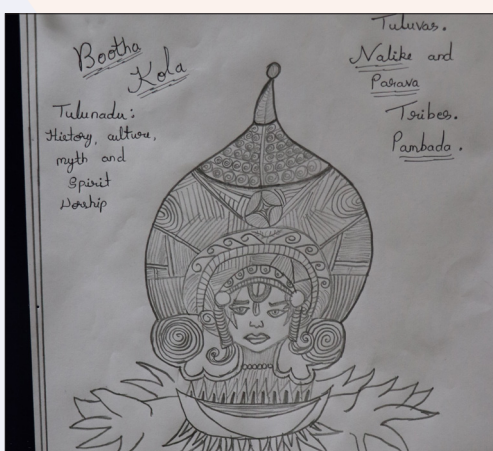 Bootha
Kola
Tulunadu:
History, culture,
myth and
Spirit
Worship
Tuluvas.
Nalike and
Parava
Tribes.
Pambada.